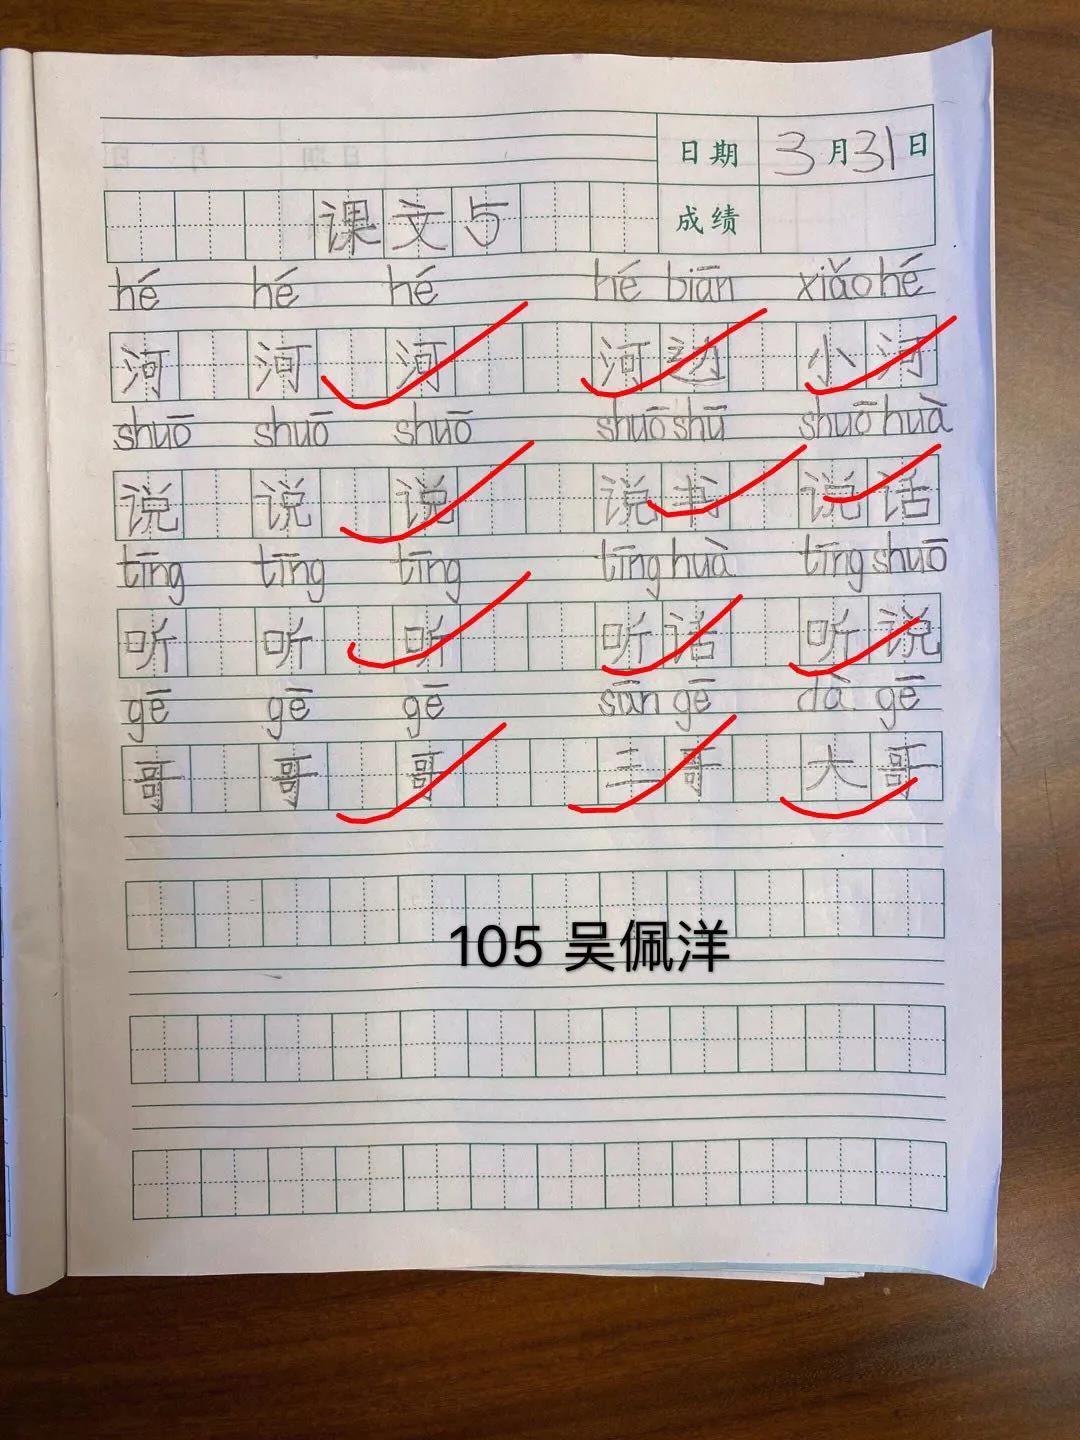 日期 3月31日
课文5
成绩
hé hé hé hé biān xiǎo hé
河 河 河 河边 小河
shuō shuō shuō shuō shū shuō huà
说 说 说 说书 说话
tīng tīng tīng tīng huà tīng shuō
听 听 听 听话 听说
gē gē gē sān gē dà gē
哥 哥 哥 三哥 大哥
105 吴佩洋